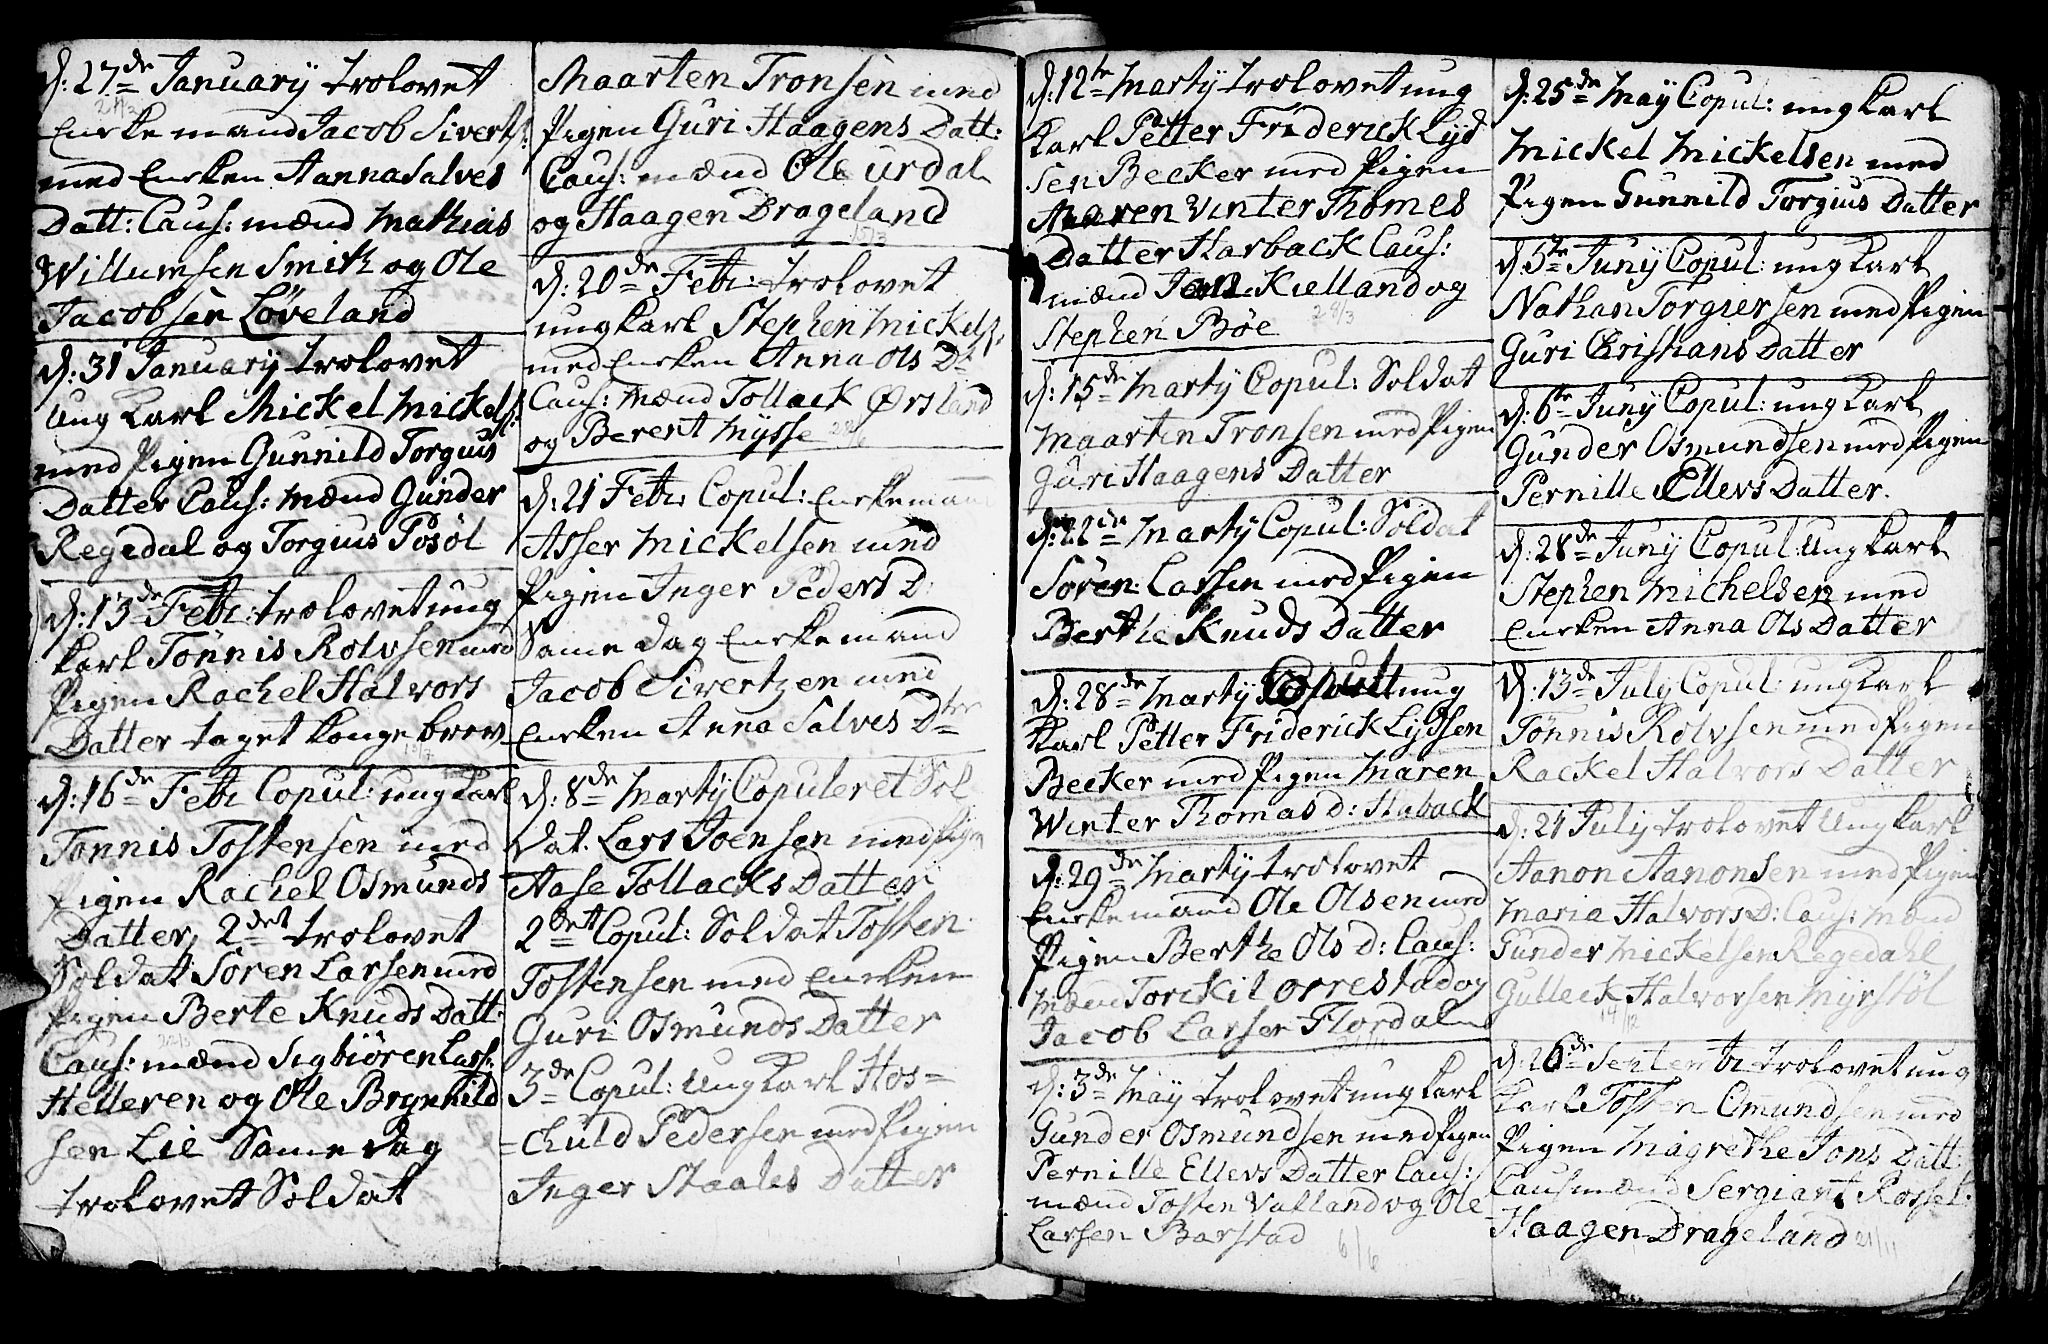 d: 27de January trolovet
21/3
Enke mand Jacob Siverts:
med Enken Hanna Salves
Datt: Caus: mænd Mathias
Willumsen Smith og Ole
Jacobsen Løveland
d: 31 January trolovet
Ung Karl Mickel Mickels:
med Pigen Gunnild Torgius
Datter Caus: mænd Gunder
Regedal og Torgius Posøl
d: 13de Febr: trolovet ung
karl Tönnis Rolvsen med
Pigen Rachel Halvors
Datter taget konge brev
d: 16de Febr Copul: ung karl
Tönnis Tostensen med
Pigen Rachel Osmunds
Datter, 2det trolovet
Soldat Sören Larsen med
Pigen Berte Knuds Datt:
Caus: mænd Sigbiören Lars:
Helleren og Ole Brynnild
sen Lie Same dag
trolovet Soldat
Maarten Tronsen med
Pigen Guri Haagens Datt:
Caus: mænd Ole Urdal
og Haagen Drageland
15/3
d: 20de Febr: trolovet
ung karl Stephen Mickels:
med Enken Anna Ols Dr
Caus: mænd Tollack Ørsland
og Berent Mysse
d: 21 Febr Copul: Enkemand
Asser Mickelsen med
Pigen Inger Peders D:
Same dag Enkemand
Jacob Sivertzen med
Enken Anna Salves Dter
d: 8de Marty Copuleret Sol
dat. Lars Joensen med Pigen
Aase Tollacks Datter
2det Copul: Soldat Tosten
Tostensen med Enken
Guri Osmunds Datter
3de Copul: Ung karl Hos=
=chuld Pedersen med Pigen
Inger Staales Datter
d: 12te Marty trolovet ung
karl Petter Friderick Lyd
sen Becker med Pigen
Maren Vinter Thomes
Datter Harback Caus:
mænd Jens Kielland og
Stephen Bøe
28/3
d: 15de Marty Copul: Soldat
Maarten Tronsen med Pigen
Guri Haagens Datter
d: 22de Marty Copul: Soldat
Sören Larsen med Pigen
Berthe Knuds Datter
d: 28de Marty Copul: ung
karl Petter Friderick Lydsen
Becker med Pigen Maren
Winter Thomas d: Haback
d: 29de Marty trolovet
Enkemand Ole Olsen med
Pigen Berthe Ols d: Caus:
mænd Torckil Orrestad og
Jacob Larsen Flordal
d: 3de May trolovet ung karl
Gunder Osmundsen med Pigen
Pernille Ellevs Datter Caus:
mænd Tosten Valland og Ole
Larsen Barstad
6/6
d: 25de May Copul: ung karl
Mickel Mickelsen med
Pigen Gunnild Torgius Datter
d: 5te Juny Copul: ung karl
Nathan Torgiersen med Pigen
Guri Christians Datter
d: 6te Juny Copul: ung karl
Gunder Osmundsen med Pigen
Pernille Ellevs Datter.
d: 28de Juny Copul: ung karl
Stephen Michelsen med
Enken Anna Ols Datter
d: 13de July Copul: ung karl
Tönnis Rolvsen med Pigen
Rackel Halvors Datter
d: 21 July trolovet Ung karl
Aanon Aanonsen med Pigen
Maria Halvors D: Caus: mænd
Gunder Mickelsen Regedahl
Gulleck Halvorsen Myrstøl
14/12
d: 26de Septembr trolovet ung
karl Tosten Omundsen med
Pigen Magrethe Jons Datt:
Caus mænd Sergiant Rosset
Haagen Drageland
21/11